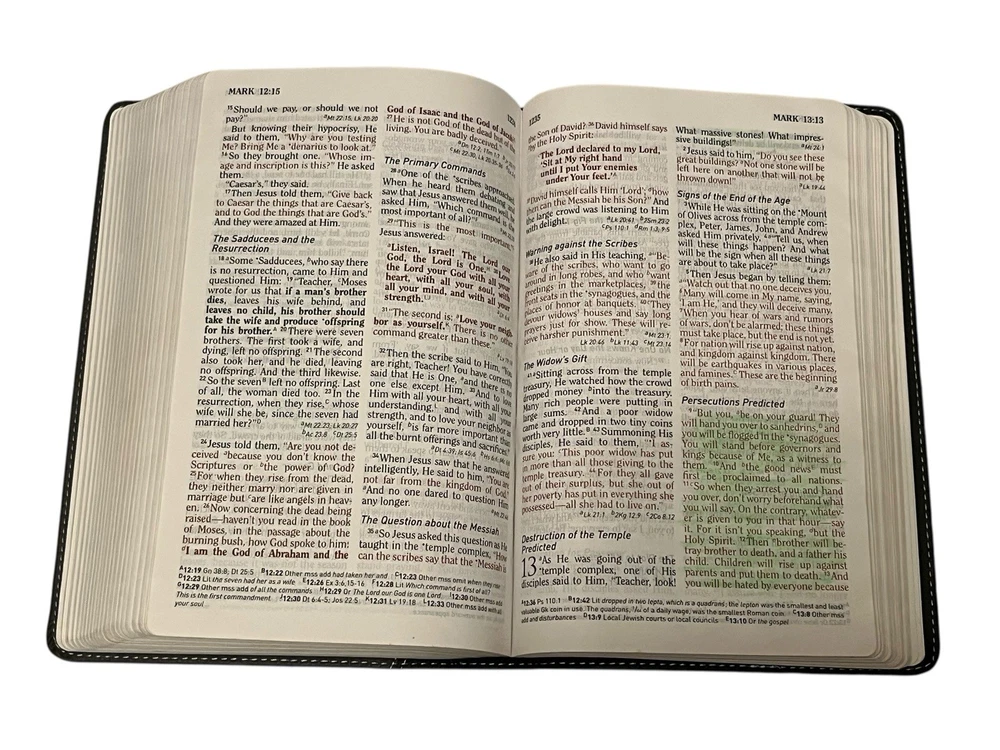 MARK 12:15
15Should we pay, or should we not
pay?" aMt 22:15; Lk 20:20
But knowing their hypocrisy, He
said to them, "Why are you testing
Me? Bring Me a *denarius to look at."
16So they brought one. "Whose im-
age and inscription is this?" He asked
them.
"Caesar's," they said.
17Then Jesus told them, "Give back
to Caesar the things that are Caesar's,
and to God the things that are God's."
And they were amazed at Him.
The Sadducees and the
Resurrection
18aSome *Sadducees, bwho say there
is no resurrection, came to Him and
questioned Him: 19"Teacher, cMoses
wrote for us that if a man's brother
dies, leaves his wife behind, and
leaves no child, his brother should
take the wife and produce *offspring
for his brother.A 20There were seven
brothers. The first took a wife, and
dying, left no offspring. 21The second
also took her, and he died, leaving
no offspring. And the third likewise.
22So the sevenB left no offspring. Last
of all, the woman died too. 23In the
resurrection, when they rise,C whose
wife will she be, since the seven had
married her?"D
aMt 22:23; Lk 20:27
bAc 23:8 cDt 25:5
24Jesus told them, "Are you not de-
ceived abecause you don't know the
Scriptures or bthe power of God?
25For when they rise from the dead,
they neither marry nor are given in
marriage but care like angels in heav-
en. 26Now concerning the dead being
raised—haven't you read in the book
of Moses, in the passage about the
burning bush, how God spoke to him:
dI am the God of Abraham and the
God of Isaac and the God of Jacob?E
27He is not God of the dead but of the
living. You are badly deceived."
The Primary Commands
28aOne of the *scribes approached.
When he heard them debating and
saw that Jesus answered them well, he
asked Him, "Which command is the
most important of all?"F
29"This is the most important,"G
Jesus answered:
aListen, Israel! The Lord our
God, the Lord is One. 30bLove
the Lord your God with all your
heart, with all your soul, with
all your mind, and with all your
strength.
31"The second is: aLove your neigh-
bor as yourself. There is no other
command greater than these."
32Then the scribe said to Him, "You
are right, Teacher! You have correctly
said that He is One, aand there is no
one else except Him. 33And to love
Him with all your heart, with all your
understanding, and with all your
strength, and to love your neighbor as
yourself, bis far more important than
all the burnt offerings and sacrifices."
34When Jesus saw that he answered
intelligently, He said to him, "You are
not far from the kingdom of God."
aAnd no one dared to question Him
any longer.
The Question about the Messiah
35aSo Jesus asked this question as He
taught in the *temple complex, "How
can the scribes say that the *Messiah is
A12:19 Gn 38:8; Dt 25:5 B12:22 Other mss add had taken her and C12:23 Other mss omit when they rise
D12:23 Lit the seven had her as a wife E12:26 Ex 3:6,15-16 F12:28 Lit Which command is first of all?
G12:29 Other mss add of all the commands H12:29 Or The Lord our God is one Lord. I12:30 Other mss add
This is the first commandment J12:30 Dt 6:4-5; Jos 22:5 K12:31 Lv 19:18 L12:33 Other mss add with all
your soul
1235
MARK 13:13
the Son of David? 36David himself says
by the Holy Spirit:
The Lord declared to my Lord,
'Sit at My right hand
until I put Your enemies
under Your feet.'A
37David himself calls Him 'Lord'; ahow
then can the Messiah be his Son?" And
the large crowd was listening to Him
with delight. aLk 20:41 b2Sm 23:2
cPs 110:1 dRm 1:3; 9:5
Warning against the Scribes
38aHe also said in His teaching, "bBe-
ware of the scribes, who want to go
around in long robes, and who cwant
greetings in the marketplaces, 39the
front seats in the *synagogues, and the
places of honor at banquets. 40dThey
devour widows' houses and say long
prayers just for show. These will re-
ceive harsher punishment." aMt 23:1
Lk 20:45 bLk 11:43 cMt 23:14
The Widow's Gift
41aSitting across from the temple
treasury, He watched how the crowd
dropped money binto the treasury.
Many rich people were putting in
large sums. 42And a poor widow
came and dropped in two tiny coins
worth very little.B 43Summoning His
disciples, He said to them, "I as-
sure you: cThis poor widow has put
in more than all those giving to the
temple treasury. 44For they all gave
out of their surplus, but she out of
her poverty has put in everything she
possessed—all she had to live on."
aLk 21:1 b2Kg 12:9 c2Co 8:12
Destruction of the Temple
Predicted
13 aAs He was going out of the
*temple complex, one of His
disciples said to Him, "Teacher, look!
What massive stones! What impres-
sive buildings!" aMt 24:1
2Jesus said to him, "Do you see these
great buildings? aNot one stone will be
left here on another that will not be
thrown down!" aLk 19:44
Signs of the End of the Age
3While He was sitting on the *Mount
of Olives across from the temple com-
plex, Peter, James, John, and Andrew
asked Him privately, 4a"Tell us, when
will these things happen? And what
will be the sign when all these things
are about to take place?" aLk 21:7
5Then Jesus began by telling them:
"Watch out that no one deceives you.
6Many will come in My name, saying,
'I am He,' and they will deceive many.
7When you hear of wars and rumors
of wars, don't be alarmed; these things
must take place, but the end is not yet.
8For nation will rise up against nation,
and kingdom against kingdom. There
will be earthquakes in various places,
and famines.C These are the beginning
of birth pains. aJr 29:8
Persecutions Predicted
9"But you, abe on your guard! They
will hand you over to sanhedrins,D and
you will be flogged in the *synagogues.
You will stand before governors and
kings because of Me, as a witness to
them. 10And bthe good newsE must
first be proclaimed to all nations.
11So when they arrest you and hand
you over, don't worry beforehand what
you will say. On the contrary, whatev-
er is given to you in that hour—say
it. For it isn't you speaking, abut the
Holy Spirit. 12Then bbrother will be-
tray brother to death, and a father his
child. Children will rise up against
parents and put them to death. 13And
you will be hated by everyone because
A12:36 Ps 110:1 B12:42 Lit dropped in two lepta, which is a quadrans; the lepton was the smallest and least
valuable Gk coin in use. The quadrans, 1/64 of a daily wage, was the smallest Roman coin. C13:8 Other mss
add and disturbances D13:9 Local Jewish courts or local councils E13:10 Or the gospel